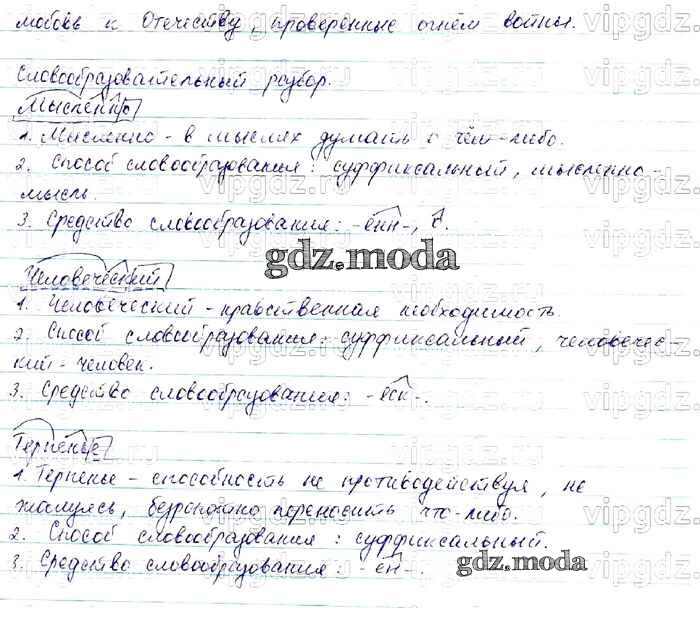 любовь к Отечеству, проверенные огнём войны.
Словообразовательный разбор.
Мысленно
1. Мысленно - в мыслях думать о чём-либо.
2. Способ словообразования: суффиксальный, мысленно -
мысль.
3. Средство словообразования: -енн-,
gdz.moda
Человеческий
1. Человеческий - нравственная необходимость.
2. Способ словообразования: суффиксальный, человечес-
кий - человек.
3. Средство словообразования: -еск-.
Терпенье
1. Терпенье - способность не противодействуя, не
жалуясь, безропотно переносить что-либо.
2. Способ словообразования: суффиксальный.
3. Средство словообразования: -ен-.
gdz.moda
vipgdz.ru